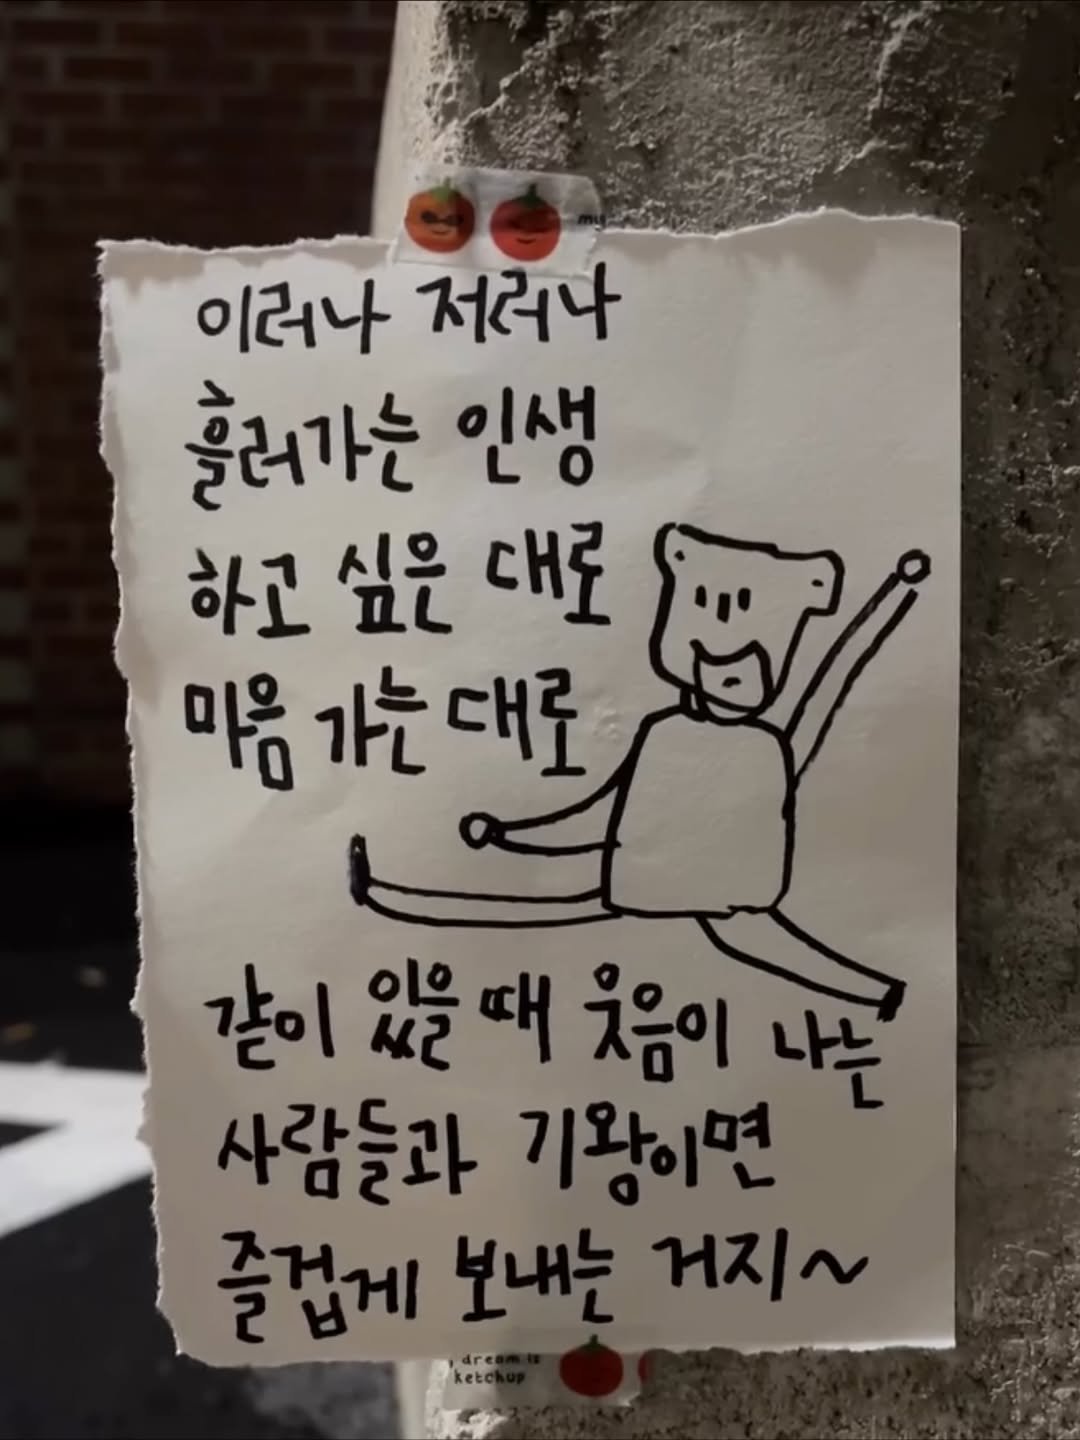 my
이러나 저러나
흘러가는 인생
하고 싶은 대로
마음 가는 대로
같이 있을 때 웃음이 나는
사람들과 기왕이면
즐겁게 보내는 거지~
dream is
ketchup